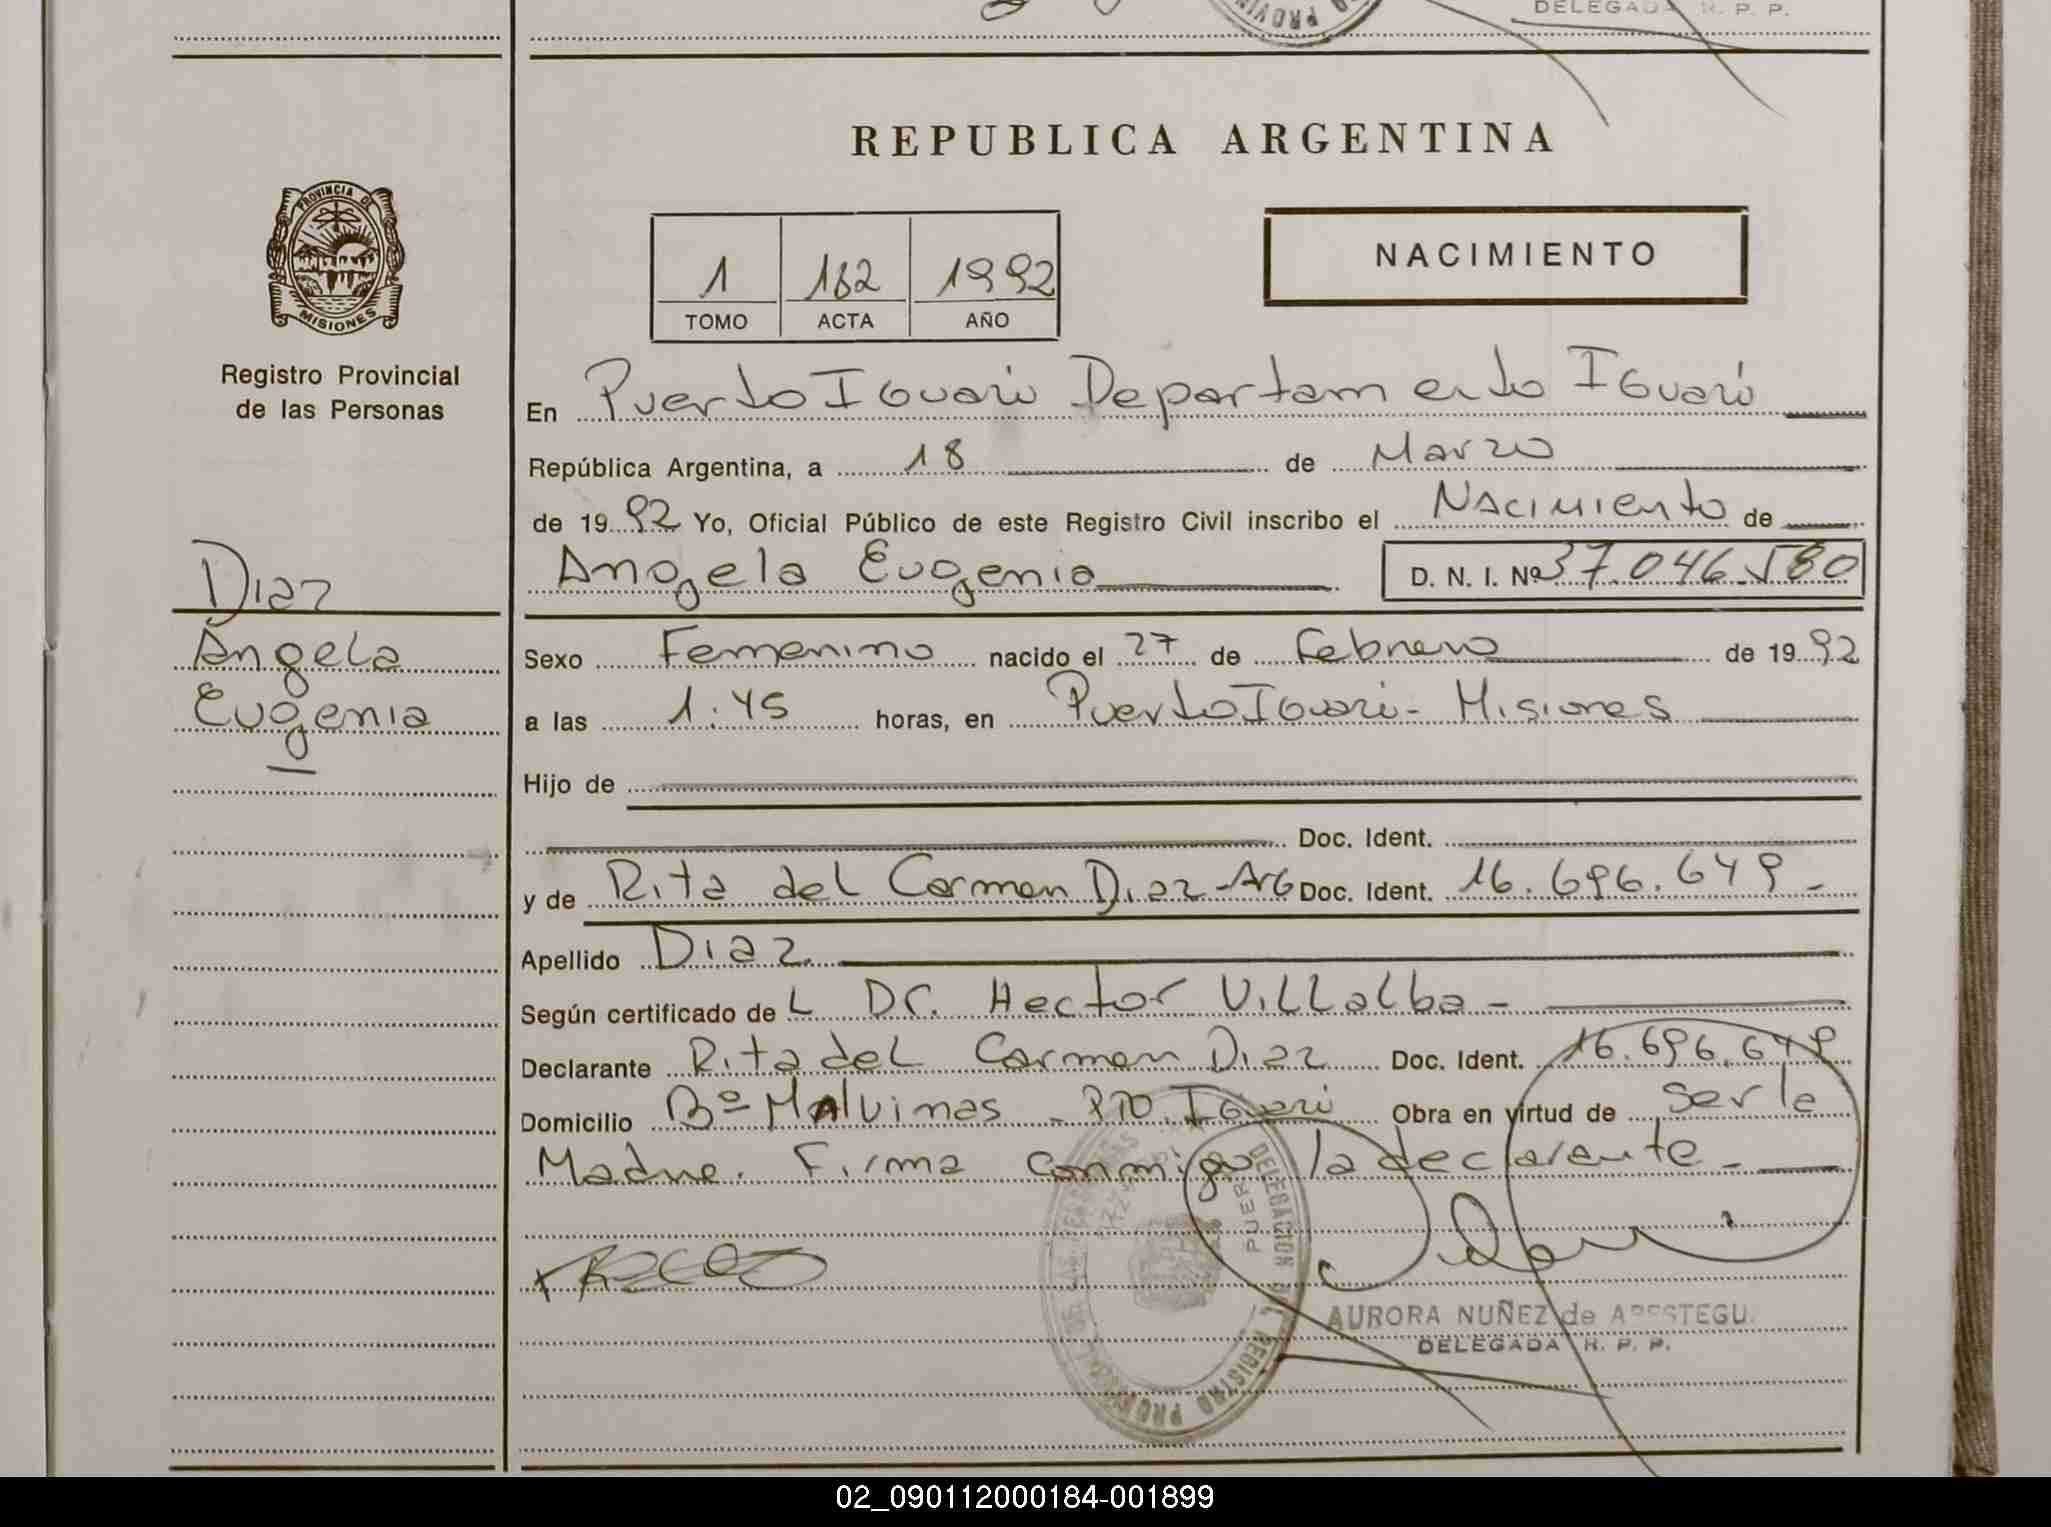 DELEGADA R. P. P.
PROVIN
REPUBLICA ARGENTINA
PROVINCIA DE
MISIONES
Registro Provincial
de las Personas
1 182 1992
TOMO ACTA AÑO
NACIMIENTO
En Puerto Iguazú Departamento Iguazú
República Argentina, a 18 de Marzo
de 1992 Yo, Oficial Público de este Registro Civil inscribo el Nacimiento de
Angela Eugenia D. N. I. Nº 37.046.580
Diaz
Angela
Eugenia
Sexo Femenino nacido el 27 de Febrero de 1992
a las 1:45 horas, en Puerto Iguazú - Misiones
Hijo de
Doc. Ident.
y de Rita del Carmen Diaz - Arg Doc. Ident. 16.696.649 -
Apellido Diaz
Según certificado de L Dr. Hector Villalba -
Declarante Rita del Carmen Diaz Doc. Ident. 16.696.649
Domicilio Bº Malvinas - Pto. Iguazú Obra en virtud de ser la
Madre. Firma conmigo la declarante -
DELEGACION DEL REGISTRO PROVINCIAL DE LAS PERSONAS
PUER
AURORA NUÑEZ de
DELEGADA R. P. P.
02_090112000184-001899